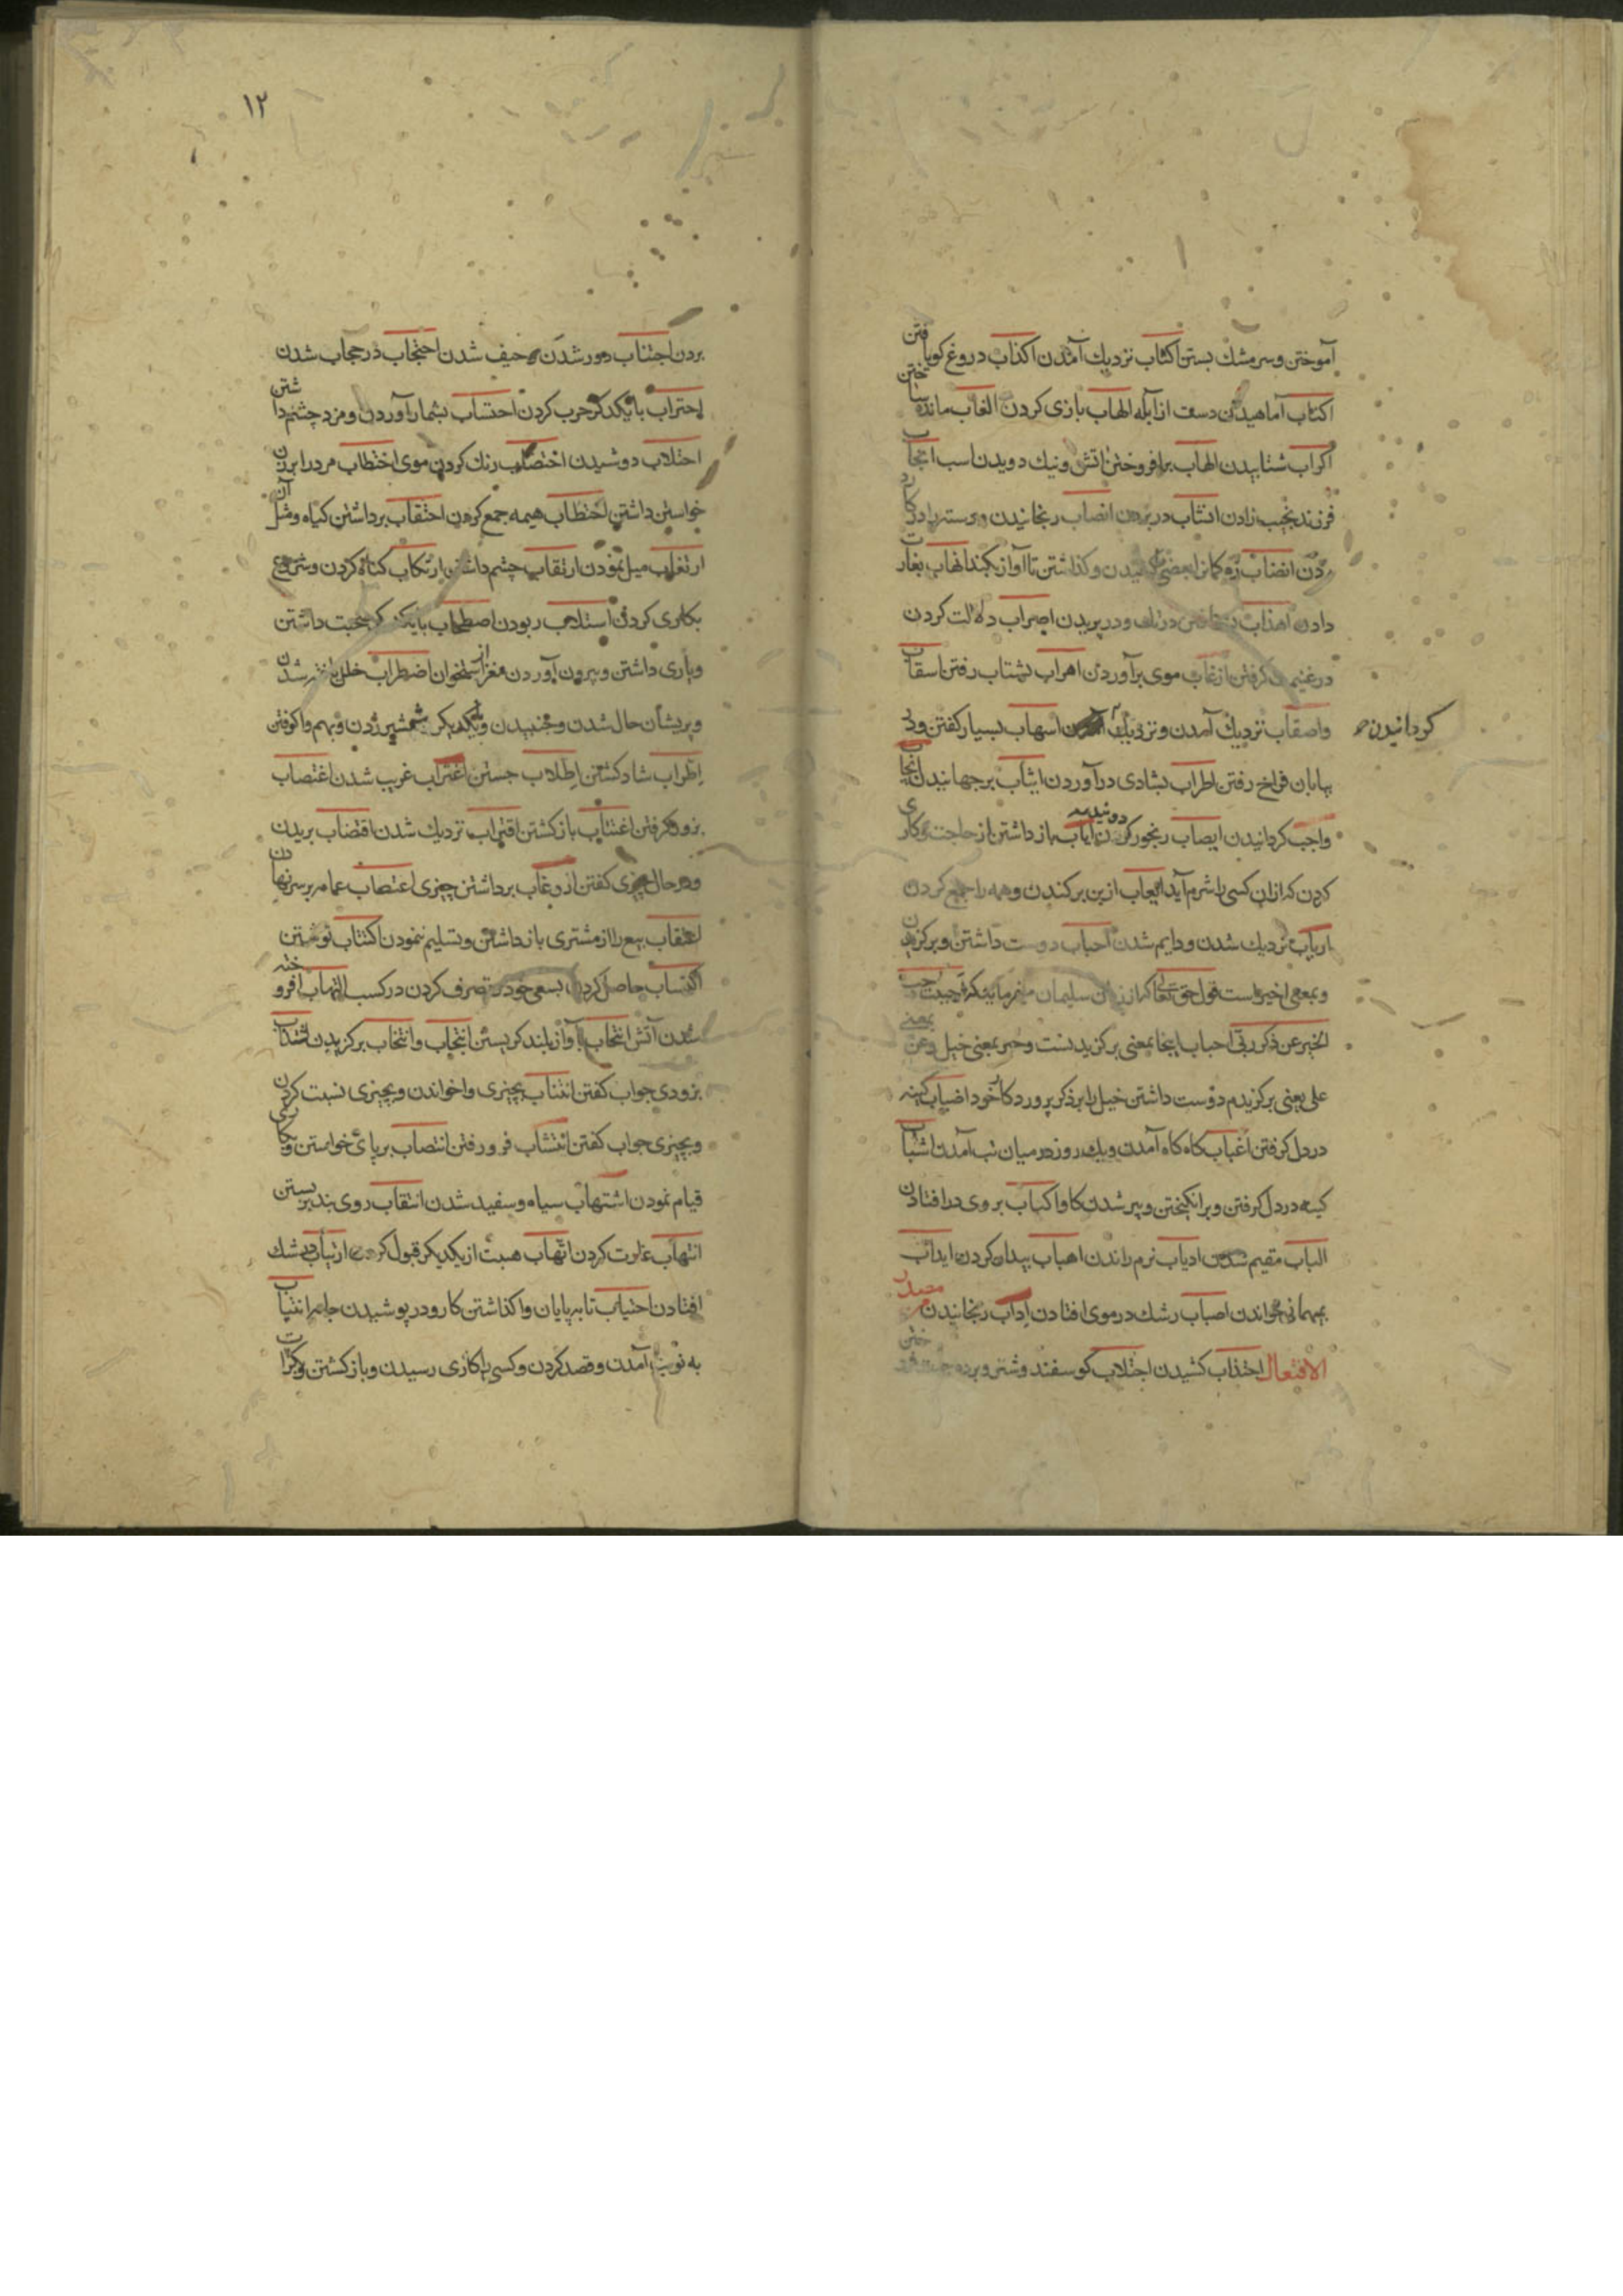 آموختن و سر مشك بستن اكثاب نزديك آمدن اكذاب دروغ كو يافتن
اكناب آماهيدن دست از آبله الهاب بازى كردن الغاب مانده ساختن
اكراب شتابيدن الهاب برافروختن اتش ونيك دويدن اسب انجاب
فرزند نجيب زادن انشاب در بردن انصاب رنجانيدن و دسته را در كارد
كردن انضاب زه كمانرا بعضى كشيدن وكذاشتن تا آواز كند انهاب بغارت
دادن اهذاب درنك ودر پريدن اصراب دلالت كردن
در غنيمت كرفتن ازغاب موى برآوردن اهراب بشتاب رفتن اسقاب
واصقاب نزديك آمدن ونزديك اسهاب بسيار كفتن ودر
كردانيدن
بيابان فراخ رفتن اطراب بشادى درآوردن ايثاب برجهانيدن ايجاب
واجب كردانيدن ايصاب رنجور كردن اياب باز داشتن از حاجت وكارى
كردن كه ازان كسى را شرم آيد ايعاب از بن بركندن وهمه را جمع كردن
ارباب نزديك شدن ودايم شدن احباب دوست داشتن وبركزيدن
وبمعنى اخير است قول حق تعالى كه از زبان سليمان ميفرمايد كه احببت حب
الخير عن ذكر ربى احباب اينجا بمعنى بركزيدنست وخير بمعنى خيل وعن بمعنى
على يعنى بركزيدم دوست داشتن خيل را بر ذكر پروردكار خود اضباب كينه
در دل كرفتن اغباب كاه كاه آمدن ويك روز در ميان تب آمدن اشباب
كينه در دل كرفتن وبرانكيختن وپير شدن كاو اكباب بروى درافتادن
الباب مقيم شدن ادباب نرم راندن اهباب بيدار كردن ايداب
بمهمانى خواندن اصباب رشك در موى افتادن اداب رنجانيدن مصدر
الافتعال اجتذاب كشيدن اجتلاب كوسفند وشتر وبرده
١٢
بردن اجتناب دور شدن وحيف شدن احتجاب در حجاب شدن
احتراب با يكديكر حرب كردن احتساب بشمار آوردن ومزد چشم داشتن
احتلاب دوشيدن اختضاب رنك كردن موى اختطاب مر در ابردن
خواستن داشتن احتطاب هيمه جمع كردن احتقاب برداشتن كياه ومثل آن
ارتغاب ميل نمودن ارتقاب چشم داشتن ارتكاب كناه كردن وشروع
بكارى كردن استلاب ربودن اصطحاب با يكديكر صحبت داشتن
ويارى داشتن وبيرون آوردن مغز از استخوان اضطراب خلل پذير شدن
وپريشان حال شدن وجنبيدن وبيكديكر شمشير زدن وبهم واكوفتن
اطراب شاد كشتن اطلاب جستن اغتراب غريب شدن اغتصاب
بزور كرفتن اعتتاب باز كشتن اقتراب نزديك شدن اقتضاب بريدن
ودر حال چيزى كفتن ازدغاب برداشتن چيزى اعتصاب عمامه بر سر نهادن
اعتقاب بيع را از مشترى باز داشتن وتسليم ننمودن اكتتاب نوشتن
اكتساب حاصل كردن بسعى خود وتصرف كردن در كسب التهاب افروخته
شدن آتش انتحاب بآواز بلند كريستن انتجاب وانتخاب بركزيدن انتداب
بزودى جواب كفتن انتساب بچيزى واخواندن وبچيزى نسبت كردن
وبچيزى جواب كفتن انتشاب فرو رفتن انتصاب برپاى خواستن وبكارى
قيام نمودن اشتهاب سياه وسفيد شدن انتقاب روى بند بربستن
انتهاب غارت كردن اتهاب هبت از يكديكر قبول كردن ارتياب در شك
افتادن اجتياب تا بپايان واكذاشتن كار ودر پوشيدن جامه انتياب
به نوبت آمدن وقصد كردن وكسى را كارى رسيدن وباز كشتن وكرات